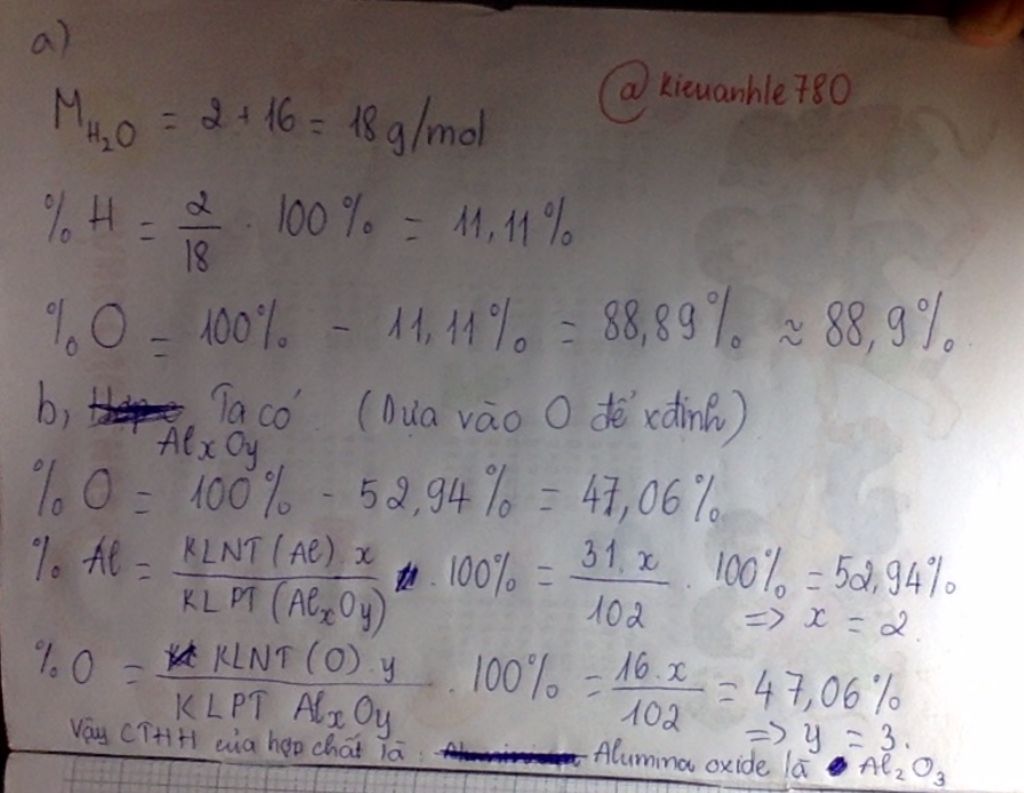 a)
@kieuanhle780
M_H₂O = 2 + 16 = 18 g/mol
% H = 2/18 . 100% = 11,11%
% O = 100% - 11,11% = 88,89% ≈ 88,9%
b, Ta có (Dựa vào O để xđịnh)
AlxOy
% O = 100% - 52,94% = 47,06%
% Al = KLNT (Al) . x / KLPT (AlxOy) . 100% = 31. x / 102 . 100% = 52,94%
=> x = 2
% O = KLNT (O) . y / KLPT AlxOy . 100% = 16. x / 102 = 47,06%
=> y = 3.
Vậy CTHH của hợp chất là : Alumina oxide là Al₂O₃